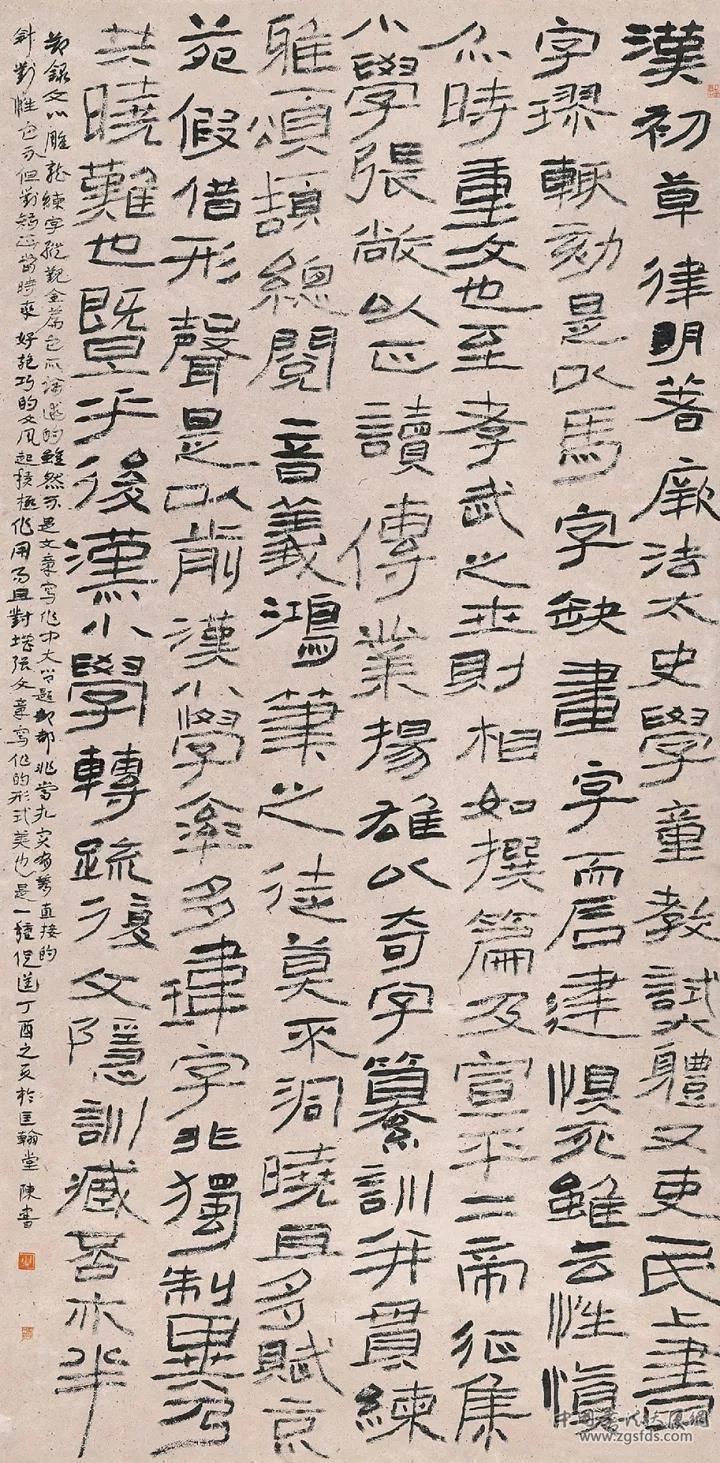 漢初草律明著厥法太史學童教試體又吏民上書
字璆輒劾是以馬字缺畫字而石建懼死雖云性慎
亦時重文也至孝武之世則相如撰篇及宣平二帝征集
小學張敞以正讀傳業揚雄以奇字纂訓并貫練
雅頌頡總閱音義鴻筆之徒莫不洞曉且多賦京
苑假借形聲是以前漢小學率多瑋字非獨制異乃
共曉難也既旦乎後漢小學轉疏復文隱訓臧否亦半
節錄文心雕龍練字縱觀全篇它所論述的雖然不是文章寫作中大问題却都非常扎实有着直接的
針對性它不但對矯正當時愛好詭巧的文风起積極作用而且對增强文章寫作的形式美也是一種促進丁酉之夏於匡翰堂陳書
www.zgsfds.com